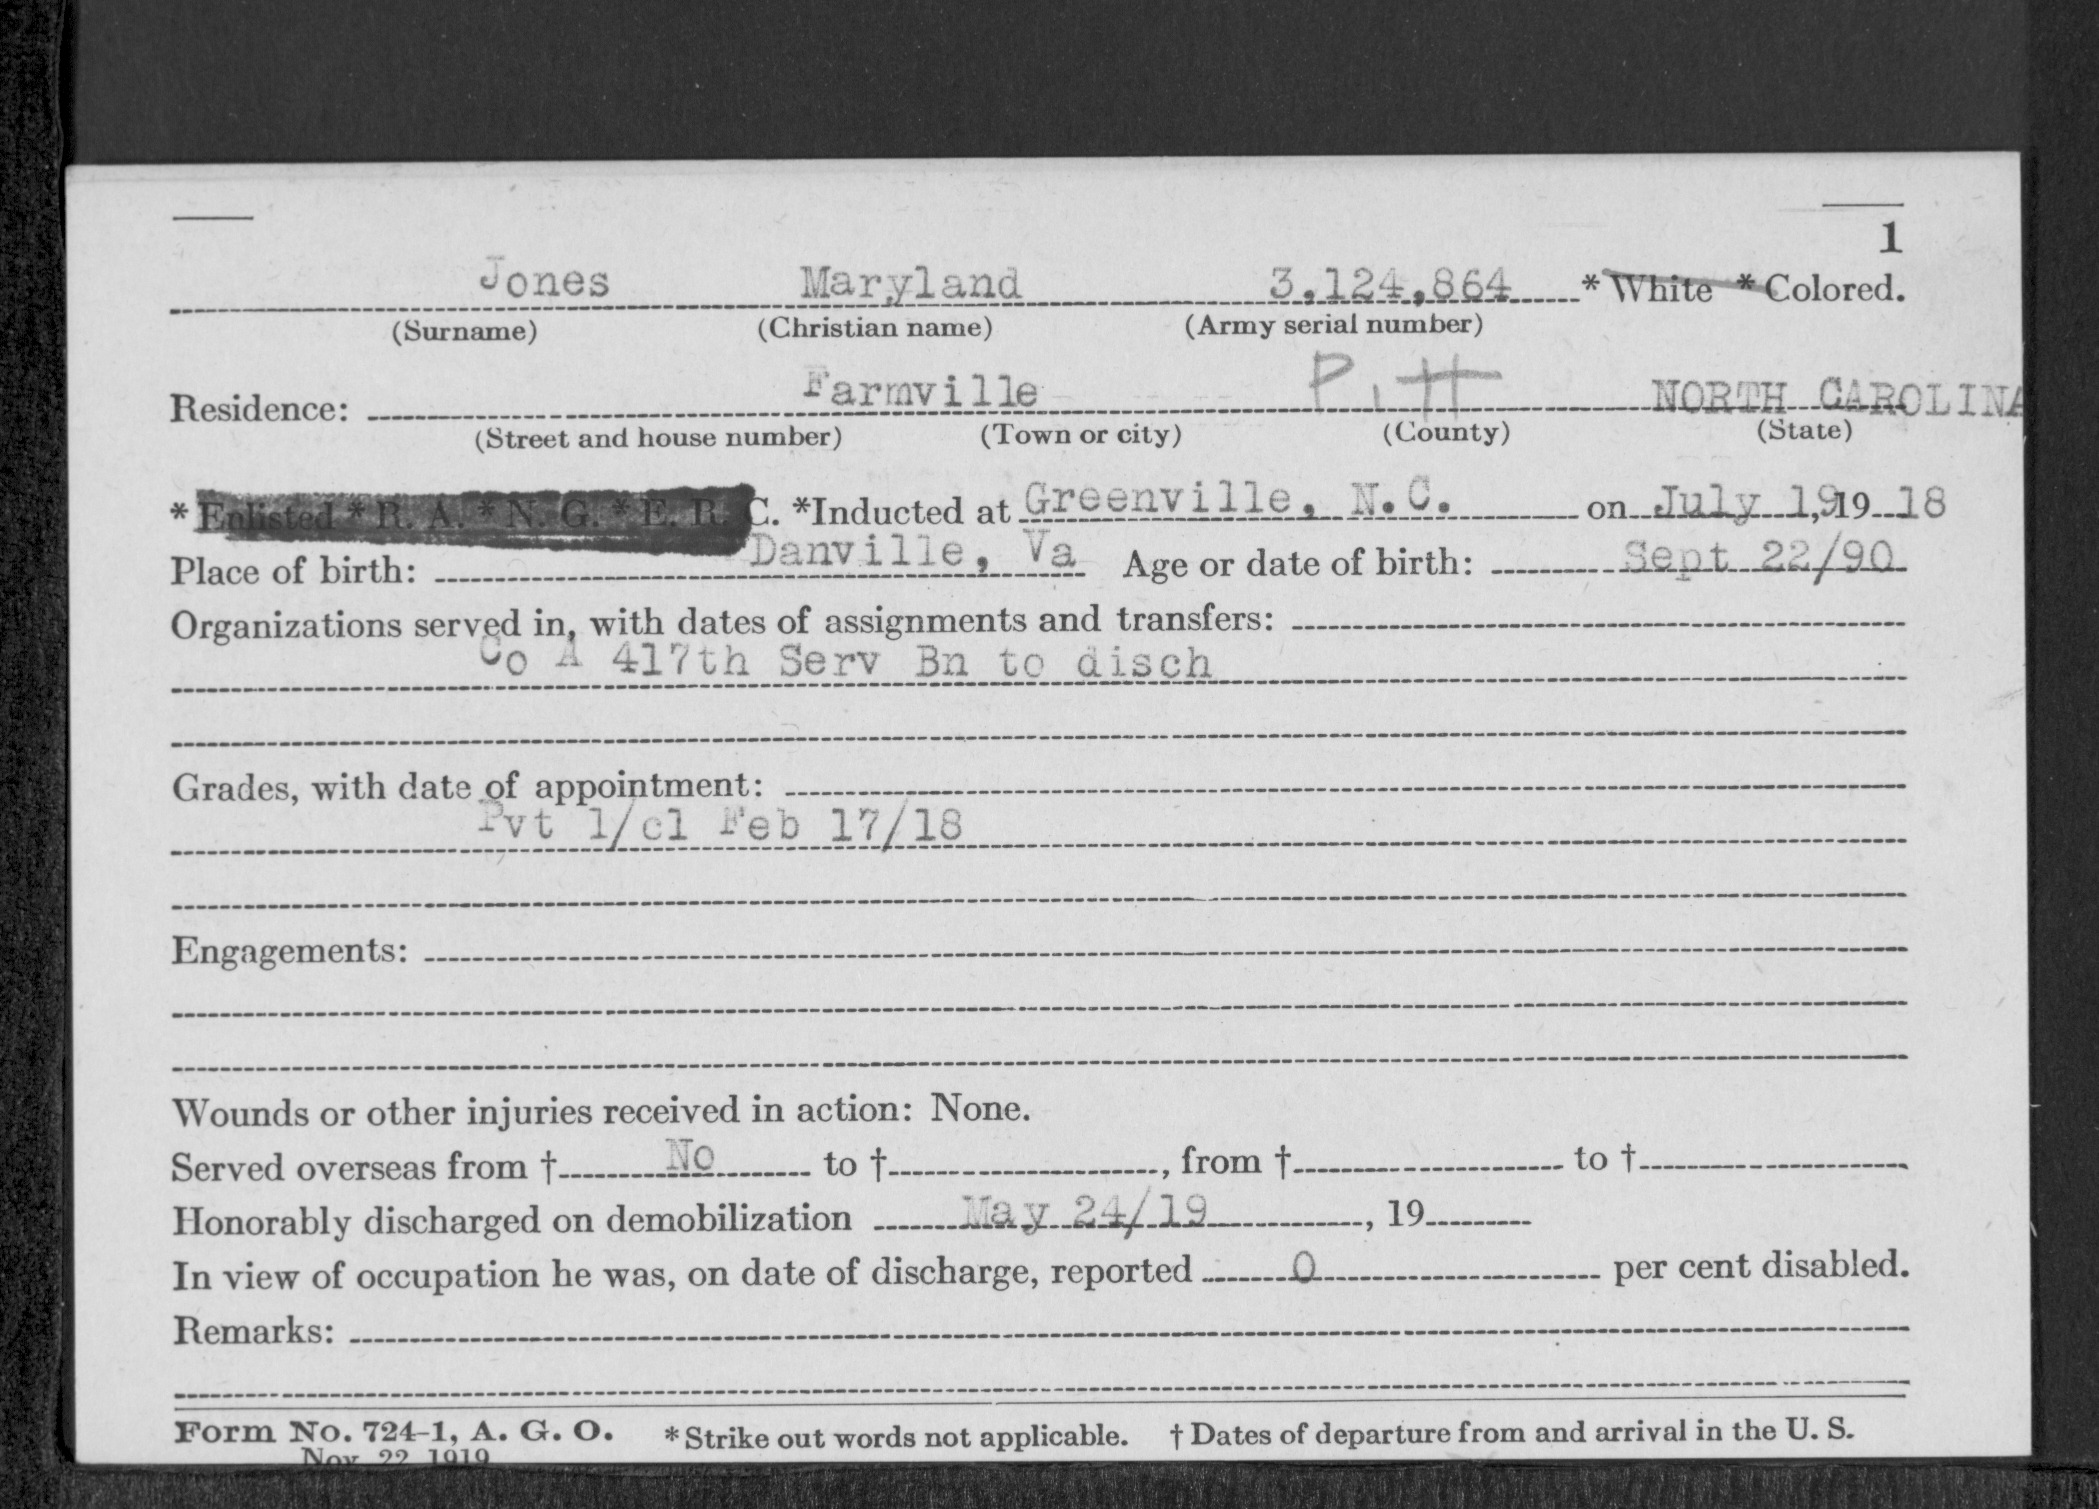 1
Jones Maryland 3,124,864 * White * Colored.
(Surname) (Christian name) (Army serial number)
Residence: Farmville Pitt NORTH CAROLINA
(Street and house number) (Town or city) (County) (State)
* Enlisted * R. A. * N. G. * E. R. C. *Inducted at Greenville, N.C. on July 19, 19 18
Place of birth: Danville, Va Age or date of birth: Sept 22/90
Organizations served in, with dates of assignments and transfers:
Co A 417th Serv Bn to disch
Grades, with date of appointment:
Pvt 1/cl Feb 17/18
Engagements:
Wounds or other injuries received in action: None.
Served overseas from † No to †, from † to †
Honorably discharged on demobilization May 24/19, 19
In view of occupation he was, on date of discharge, reported 0 per cent disabled.
Remarks:
Form No. 724-1, A. G. O. * Strike out words not applicable. † Dates of departure from and arrival in the U. S.
Nov. 22, 1919